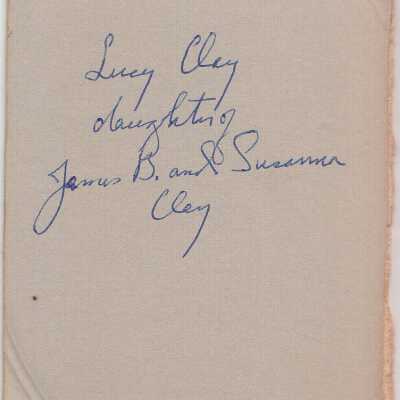 Lucy Clay
daughter of
James B. and Susanna
Clay